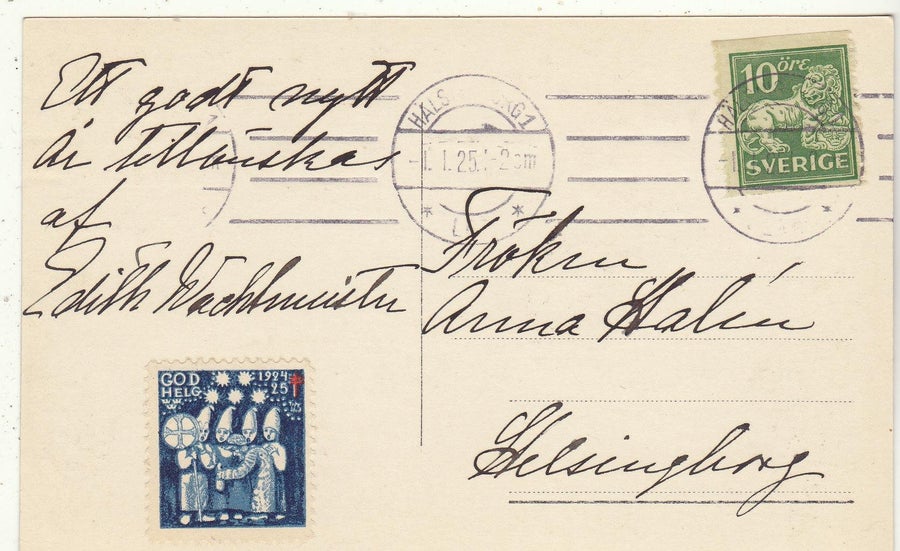 Ett godt nytt
år tillönskas
af
Edith Wachtmeister
HÄLSINGBORG 1
-1.1.25.1-2 em
10 öre
SVERIGE
Fröken
Anna Halén
Helsingborg
GOD HELG
1924
25